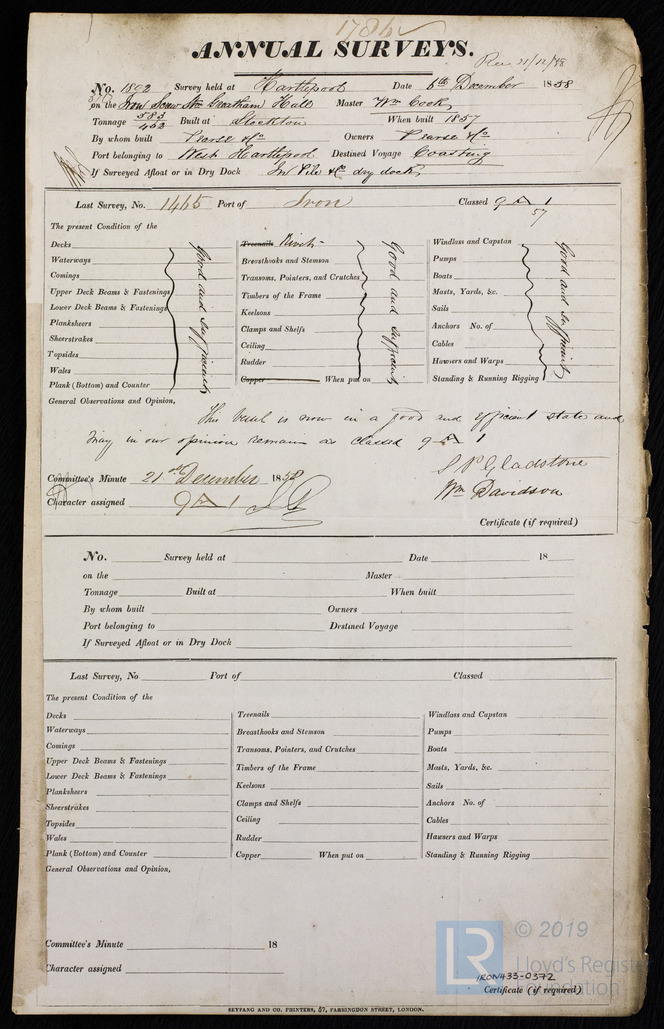 ANNUAL SURVEYS.
Rec 21/12/58
No. 1802 Survey held at Hartlepool Date 6th December 1858
on the Iron Screw Str Greatham Hall Master Wm Cook
Tonnage 583 462 Built at Stockton When built 1857
By whom built Pearse & Co Owners Pearse & Co
Port belonging to West Hartlepool Destined Voyage Coasting
If Surveyed Afloat or in Dry Dock In Pile & Co dry dock
Last Survey, No. 1465 Port of Iron Classed 9 A 1
57
The present Condition of the
Decks
Waterways
Comings
Upper Deck Beams & Fastenings
Lower Deck Beams & Fastenings
Planksheers
Sheerstrakes
Topsides
Wales
Plank (Bottom) and Counter
Good and sufficient
Treenails Rivets
Breasthooks and Stemson
Transoms, Pointers, and Crutches
Timbers of the Frame
Keelsons
Clamps and Shelfs
Ceiling
Rudder
Copper When put on
Good and sufficient
Windlass and Capstan
Pumps
Boats
Masts, Yards, &c.
Sails
Anchors No. of
Cables
Hawsers and Warps
Standing & Running Rigging
Good and sufficient
General Observations and Opinion,
This vessel is now in a good and efficient state and
may in our opinion remain as classed 9 A 1
S P Gladstone
Wm Davidson
Committee's Minute 21st December 1858
Character assigned 9 A 1
Certificate (if required)
No. Survey held at Date 18
on the Master
Tonnage Built at When built
By whom built Owners
Port belonging to Destined Voyage
If Surveyed Afloat or in Dry Dock
Last Survey, No Port of Classed
The present Condition of the
Decks
Waterways
Comings
Upper Deck Beams & Fastenings
Lower Deck Beams & Fastenings
Planksheers
Sheerstrakes
Topsides
Wales
Plank (Bottom) and Counter
Treenails
Breasthooks and Stemson
Transoms, Pointers, and Crutches
Timbers of the Frame
Keelsons
Clamps and Shelfs
Ceiling
Rudder
Copper When put on
Windlass and Capstan
Pumps
Boats
Masts, Yards, &c.
Sails
Anchors No. of
Cables
Hawsers and Warps
Standing & Running Rigging
General Observations and Opinion,
Committee's Minute 18
Character assigned
LR © 2019
Lloyd's Register
Foundation
IRON433-0372
Certificate (if required)
SEYFANG AND CO. PRINTERS, 57, FARRINGDON STREET, LONDON.